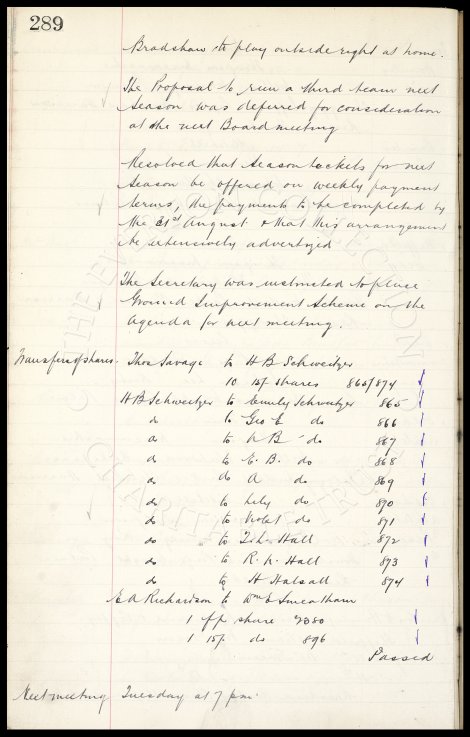 289
Bradshaw to play outside right at home.
The Proposal to run a third team next
Season was deferred for consideration
at the next Board meeting
Resolved that Season tickets for next
Season be offered on weekly payment
terms, the payments to be completed by
the 31st August & that this arrangement
be extensively advertized
The Secretary was instructed to place
Ground Improvement Scheme on the
agenda for next meeting.
Transfer of shares. Thos Savage to H B Schweitzer
10 15/- shares 865/874
H B Schweitzer to Emily Schweitzer 865
do to Geo E do 866
do to do 867
do to E. B. do 868
do do A do 869
do to Lily do 870
do to Violet do 871
do to Hall 872
do to R. W. Hall 873
do to H Halsall 874
E A Richardson to Wm E Smeatham
1 share 2380
1 15/- do 896
Passed
Next meeting Tuesday at 7 pm.
THE EVERTON COLLECTION
CHARITABLE TRUST